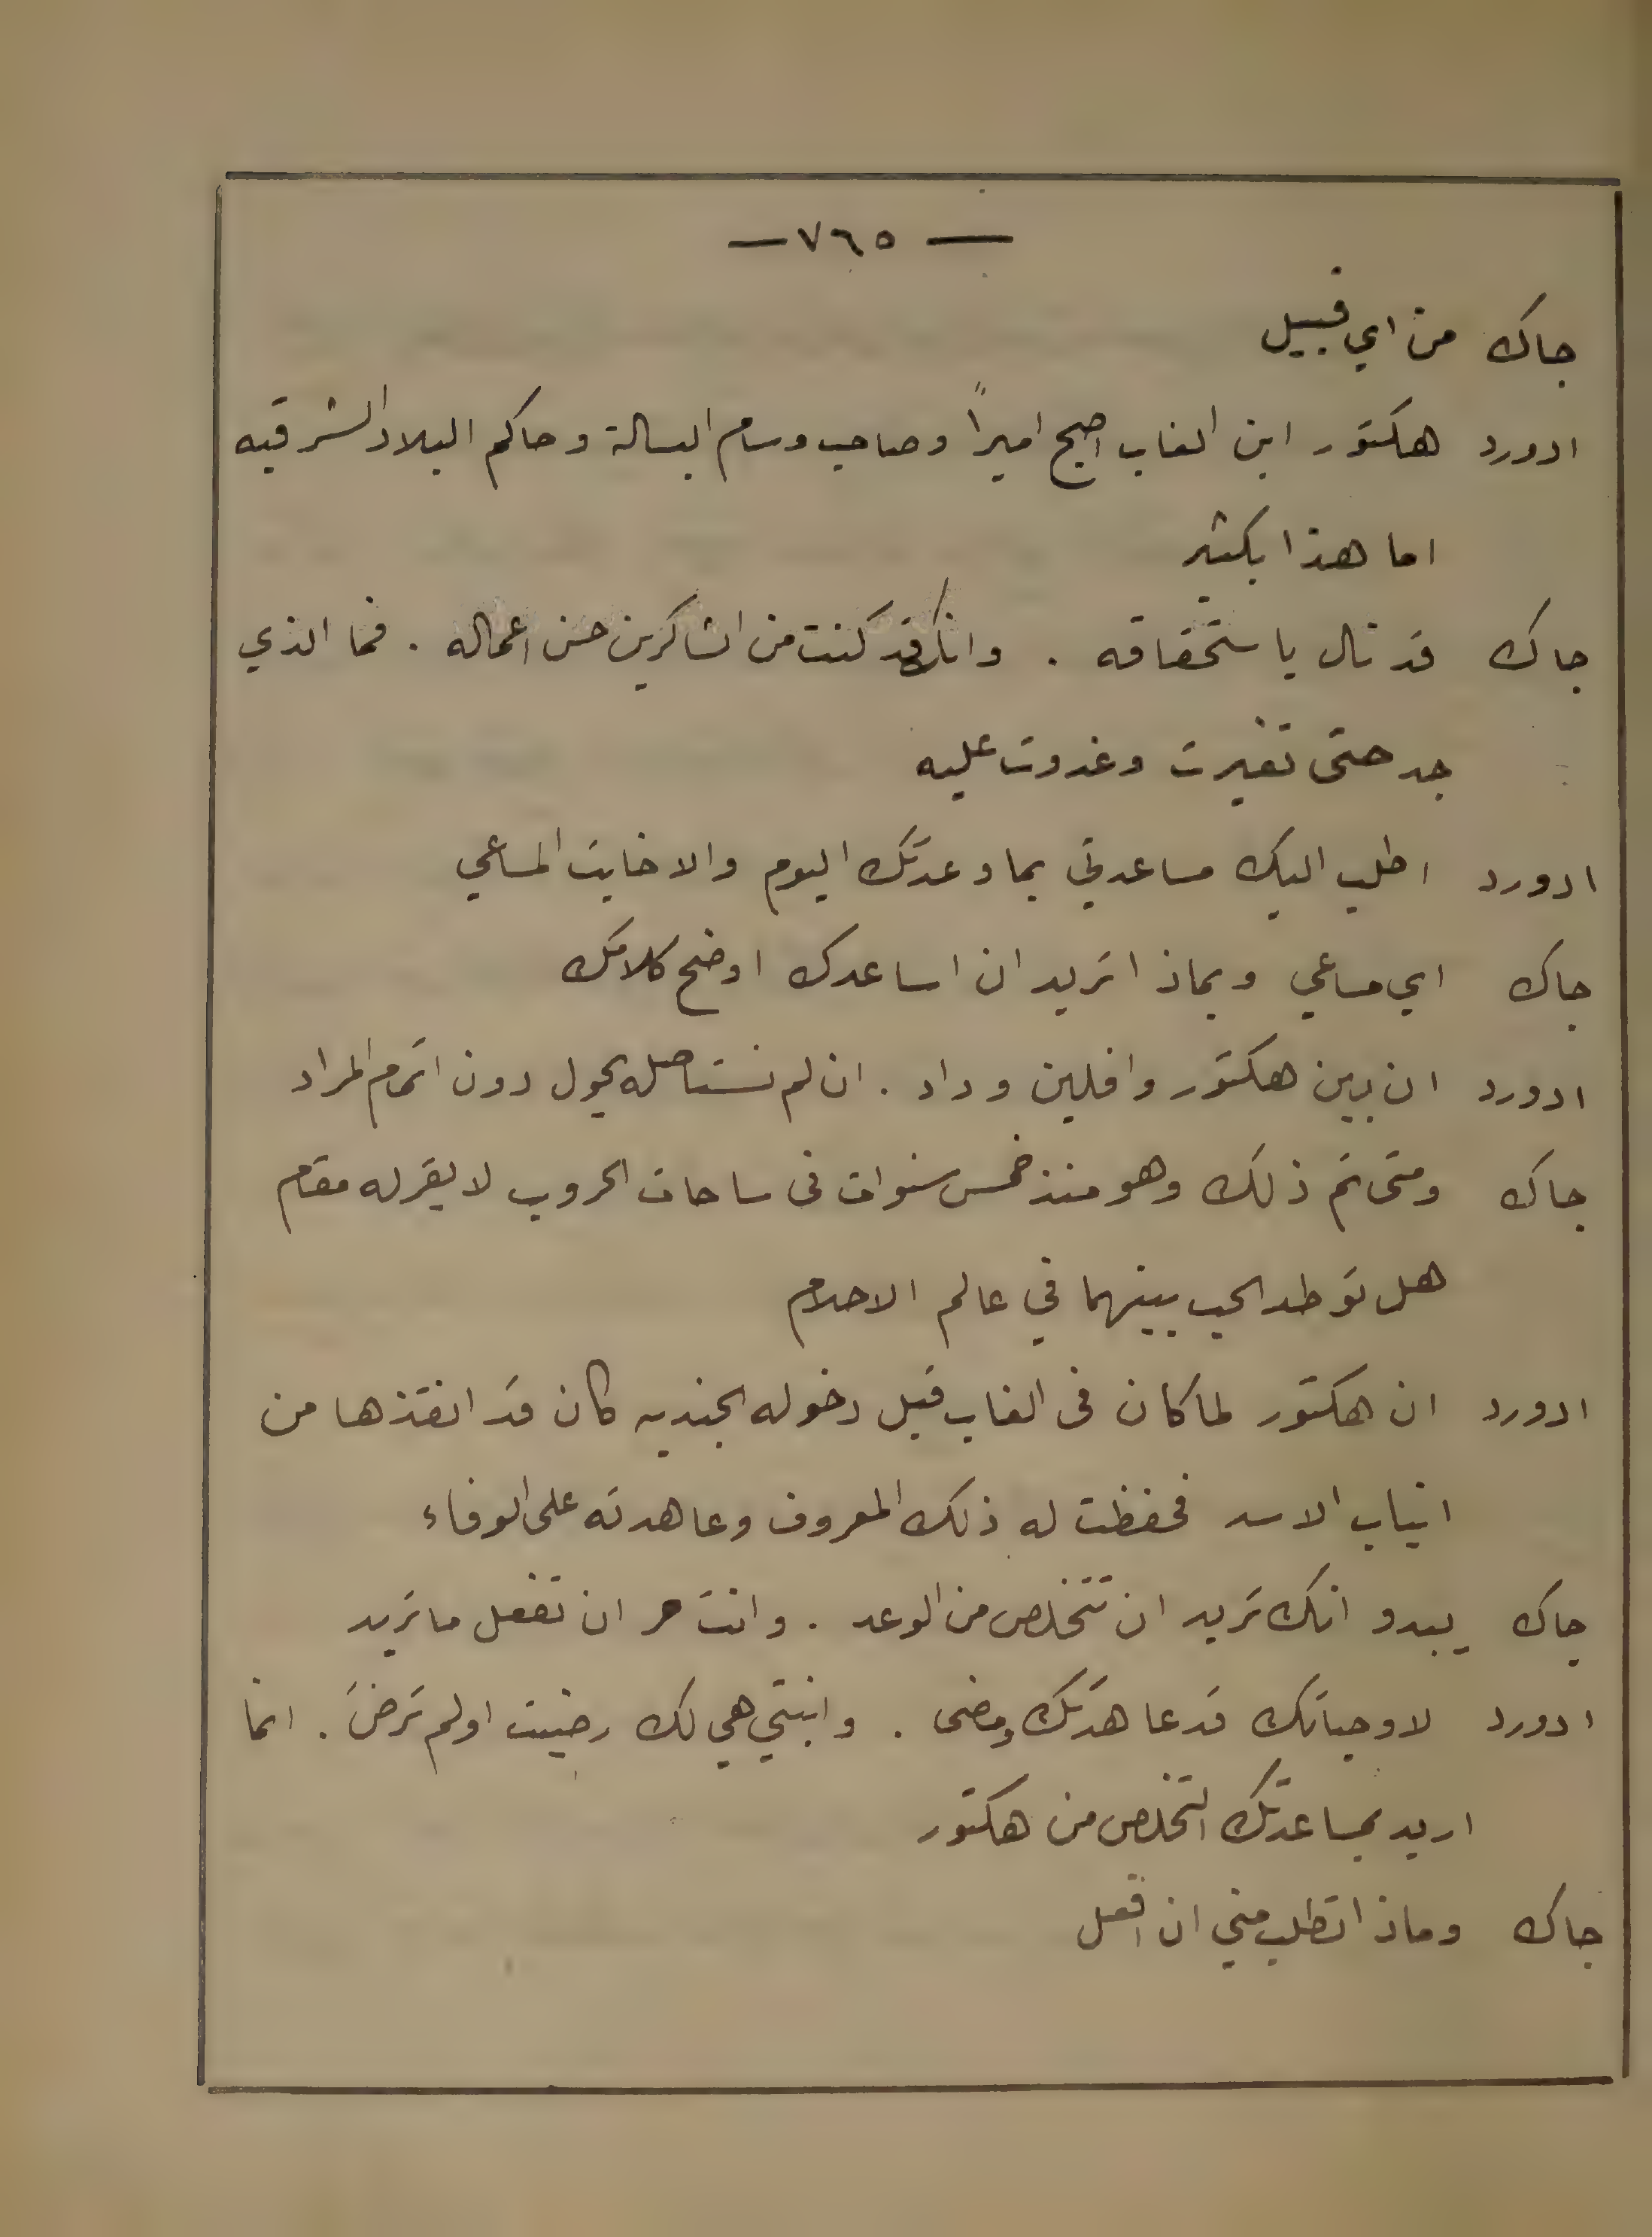 — ٧٦٥ —
جاك من اي قبيل
ادورد هكتور ابن الغاب اصبح اميرًا وصاحب وسام البسالة وحاكم البلاد الشرقيه
اما هذا بكثير
جاك قد نال باستحقاقه . وانك قد كنت من الشاكرين حسن اعماله . فما الذي
جد حتى تغيرت وغدوت عليه
ادورد اطلب اليك مساعدتي بما وعدتك اليوم والا خابت المساعي
جاك اي مساعي وبماذا تريد ان اساعدك اوضح كلامك
ادورد ان بين هكتور وافلين وداد . ان لم نستاصله يحول دون اتمام المراد
جاك ومتى تم ذلك وهو منذ خمس سنوات فى ساحات الحروب لا يقر له مقام
هل توطد الحب بينهما في عالم الاحلام
ادورد ان هكتور لما كان فى الغاب قبل دخوله الجنديه كان قد انقذها من
انياب الاسد فحفظت له ذلك المعروف وعاهدته على الوفاء
جاك يبدو انك تريد ان تتخلص من الوعد . وانت حر ان تفعل ما تريد
ادورد لا وحياتك قد عاهدتك ومضى . وابنتي هي لك رضيت او لم ترضَ . انما
اريد بمساعدتك التخلص من هكتور
جاك وماذا تطلب مني ان افعل